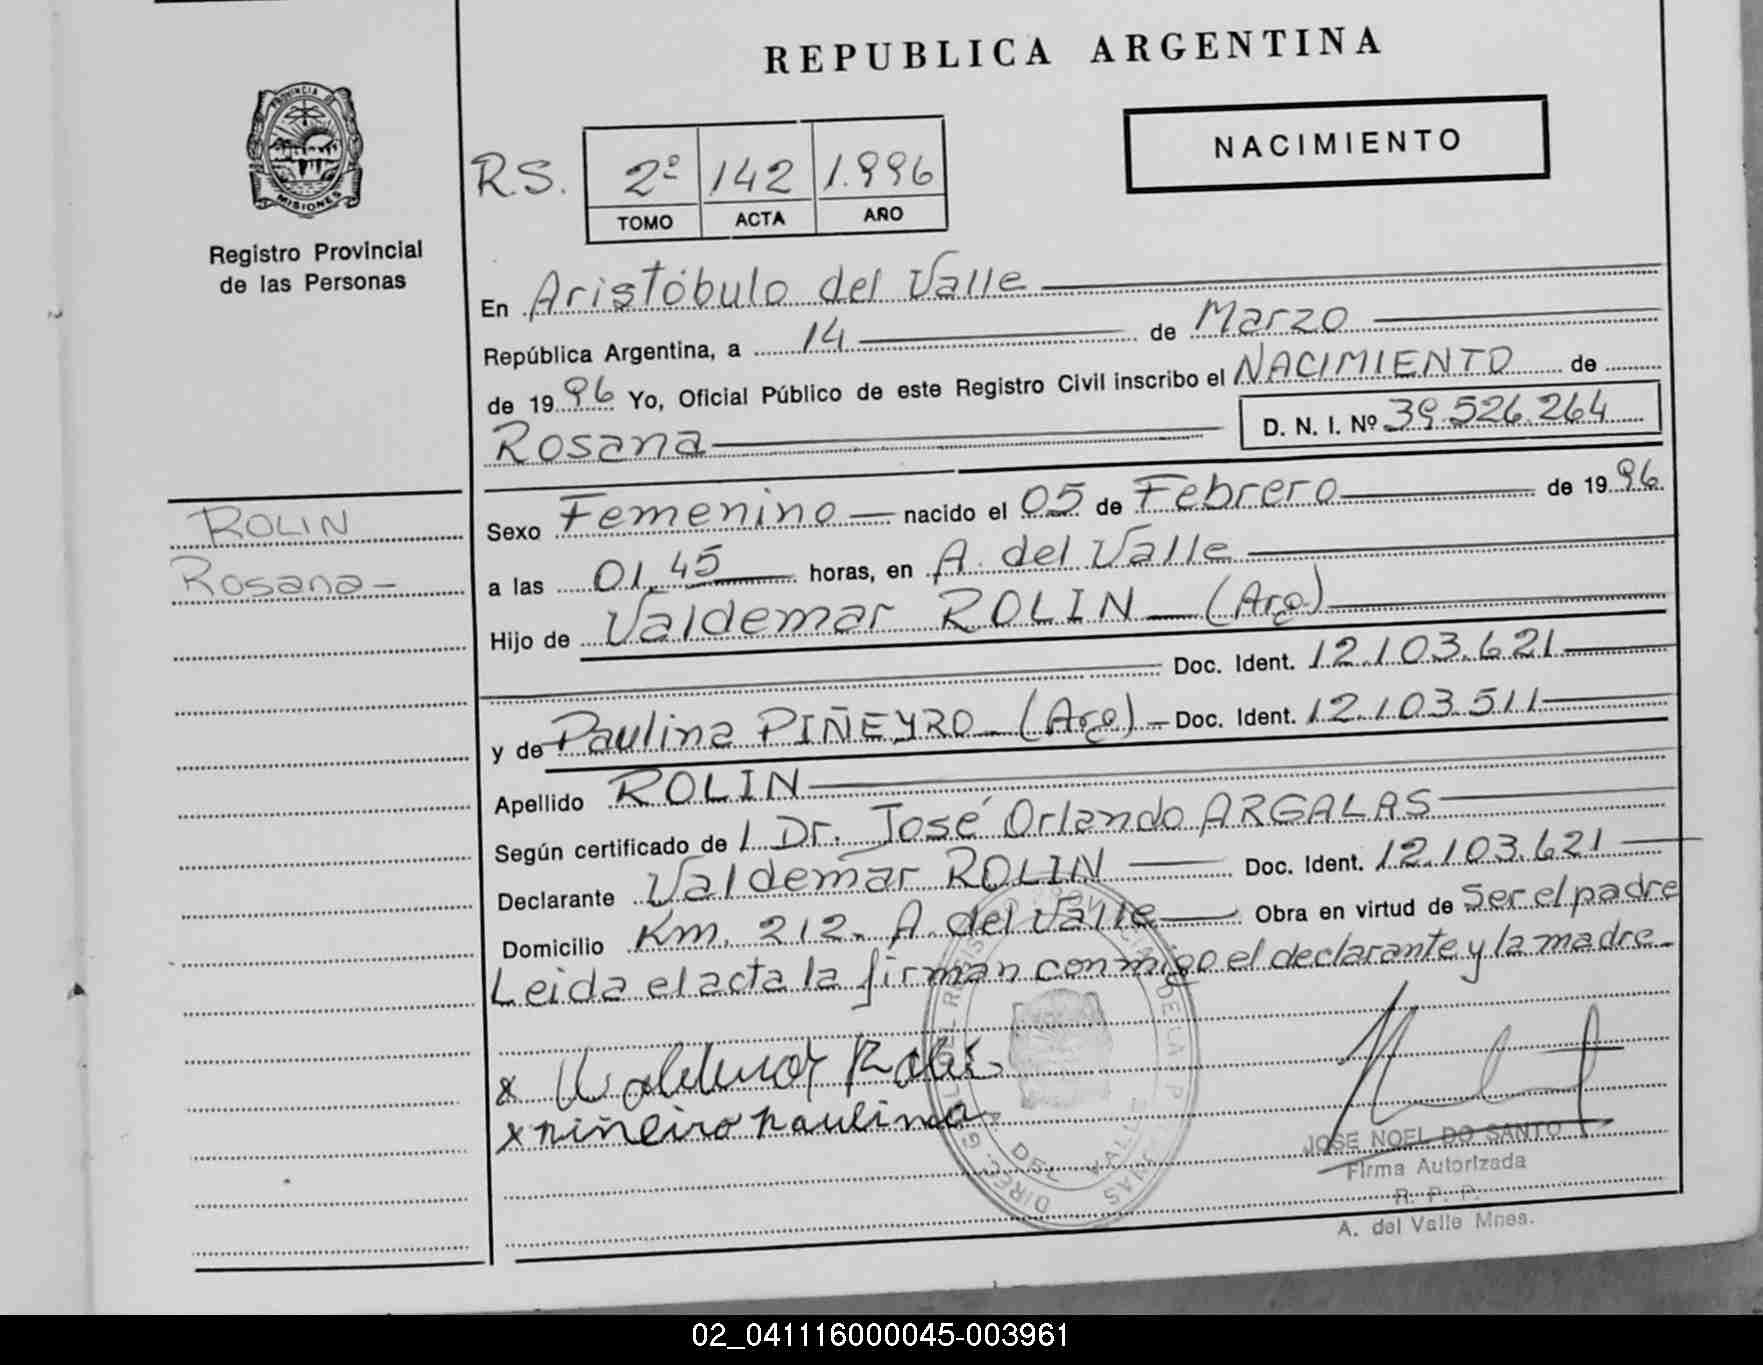 REPUBLICA ARGENTINA
PROVINCIA DE
MISIONES
Registro Provincial
de las Personas
NACIMIENTO
R.S. 2º 142 1.996
TOMO ACTA AÑO
En Aristóbulo del Valle
República Argentina, a 14 de Marzo
de 1996 Yo, Oficial Público de este Registro Civil inscribo el NACIMIENTO de
Rosana D. N. I. Nº 39.526.264
ROLIN
Rosana-
Sexo Femenino nacido el 05 de Febrero de 1996
a las 01,45 horas, en A. del Valle
Hijo de Valdemar ROLIN (Arg)
Doc. Ident. 12.103.621
y de Paulina PIÑEYRO (Arg) Doc. Ident. 12.103.511
Apellido ROLIN
Según certificado de / Dr. José Orlando ARGALAS
Declarante Valdemar ROLIN Doc. Ident. 12.103.621
Domicilio Km. 212. A. del Valle Obra en virtud de Ser el padre
Leida el acta la firman conmigo el declarante y la madre
x Valdemar Rolin
x piñeiro paulina
JOSE NOEL DO SANTO
Firma Autorizada
R. P. P.
A. del Valle Mnes.
02_041116000045-003961